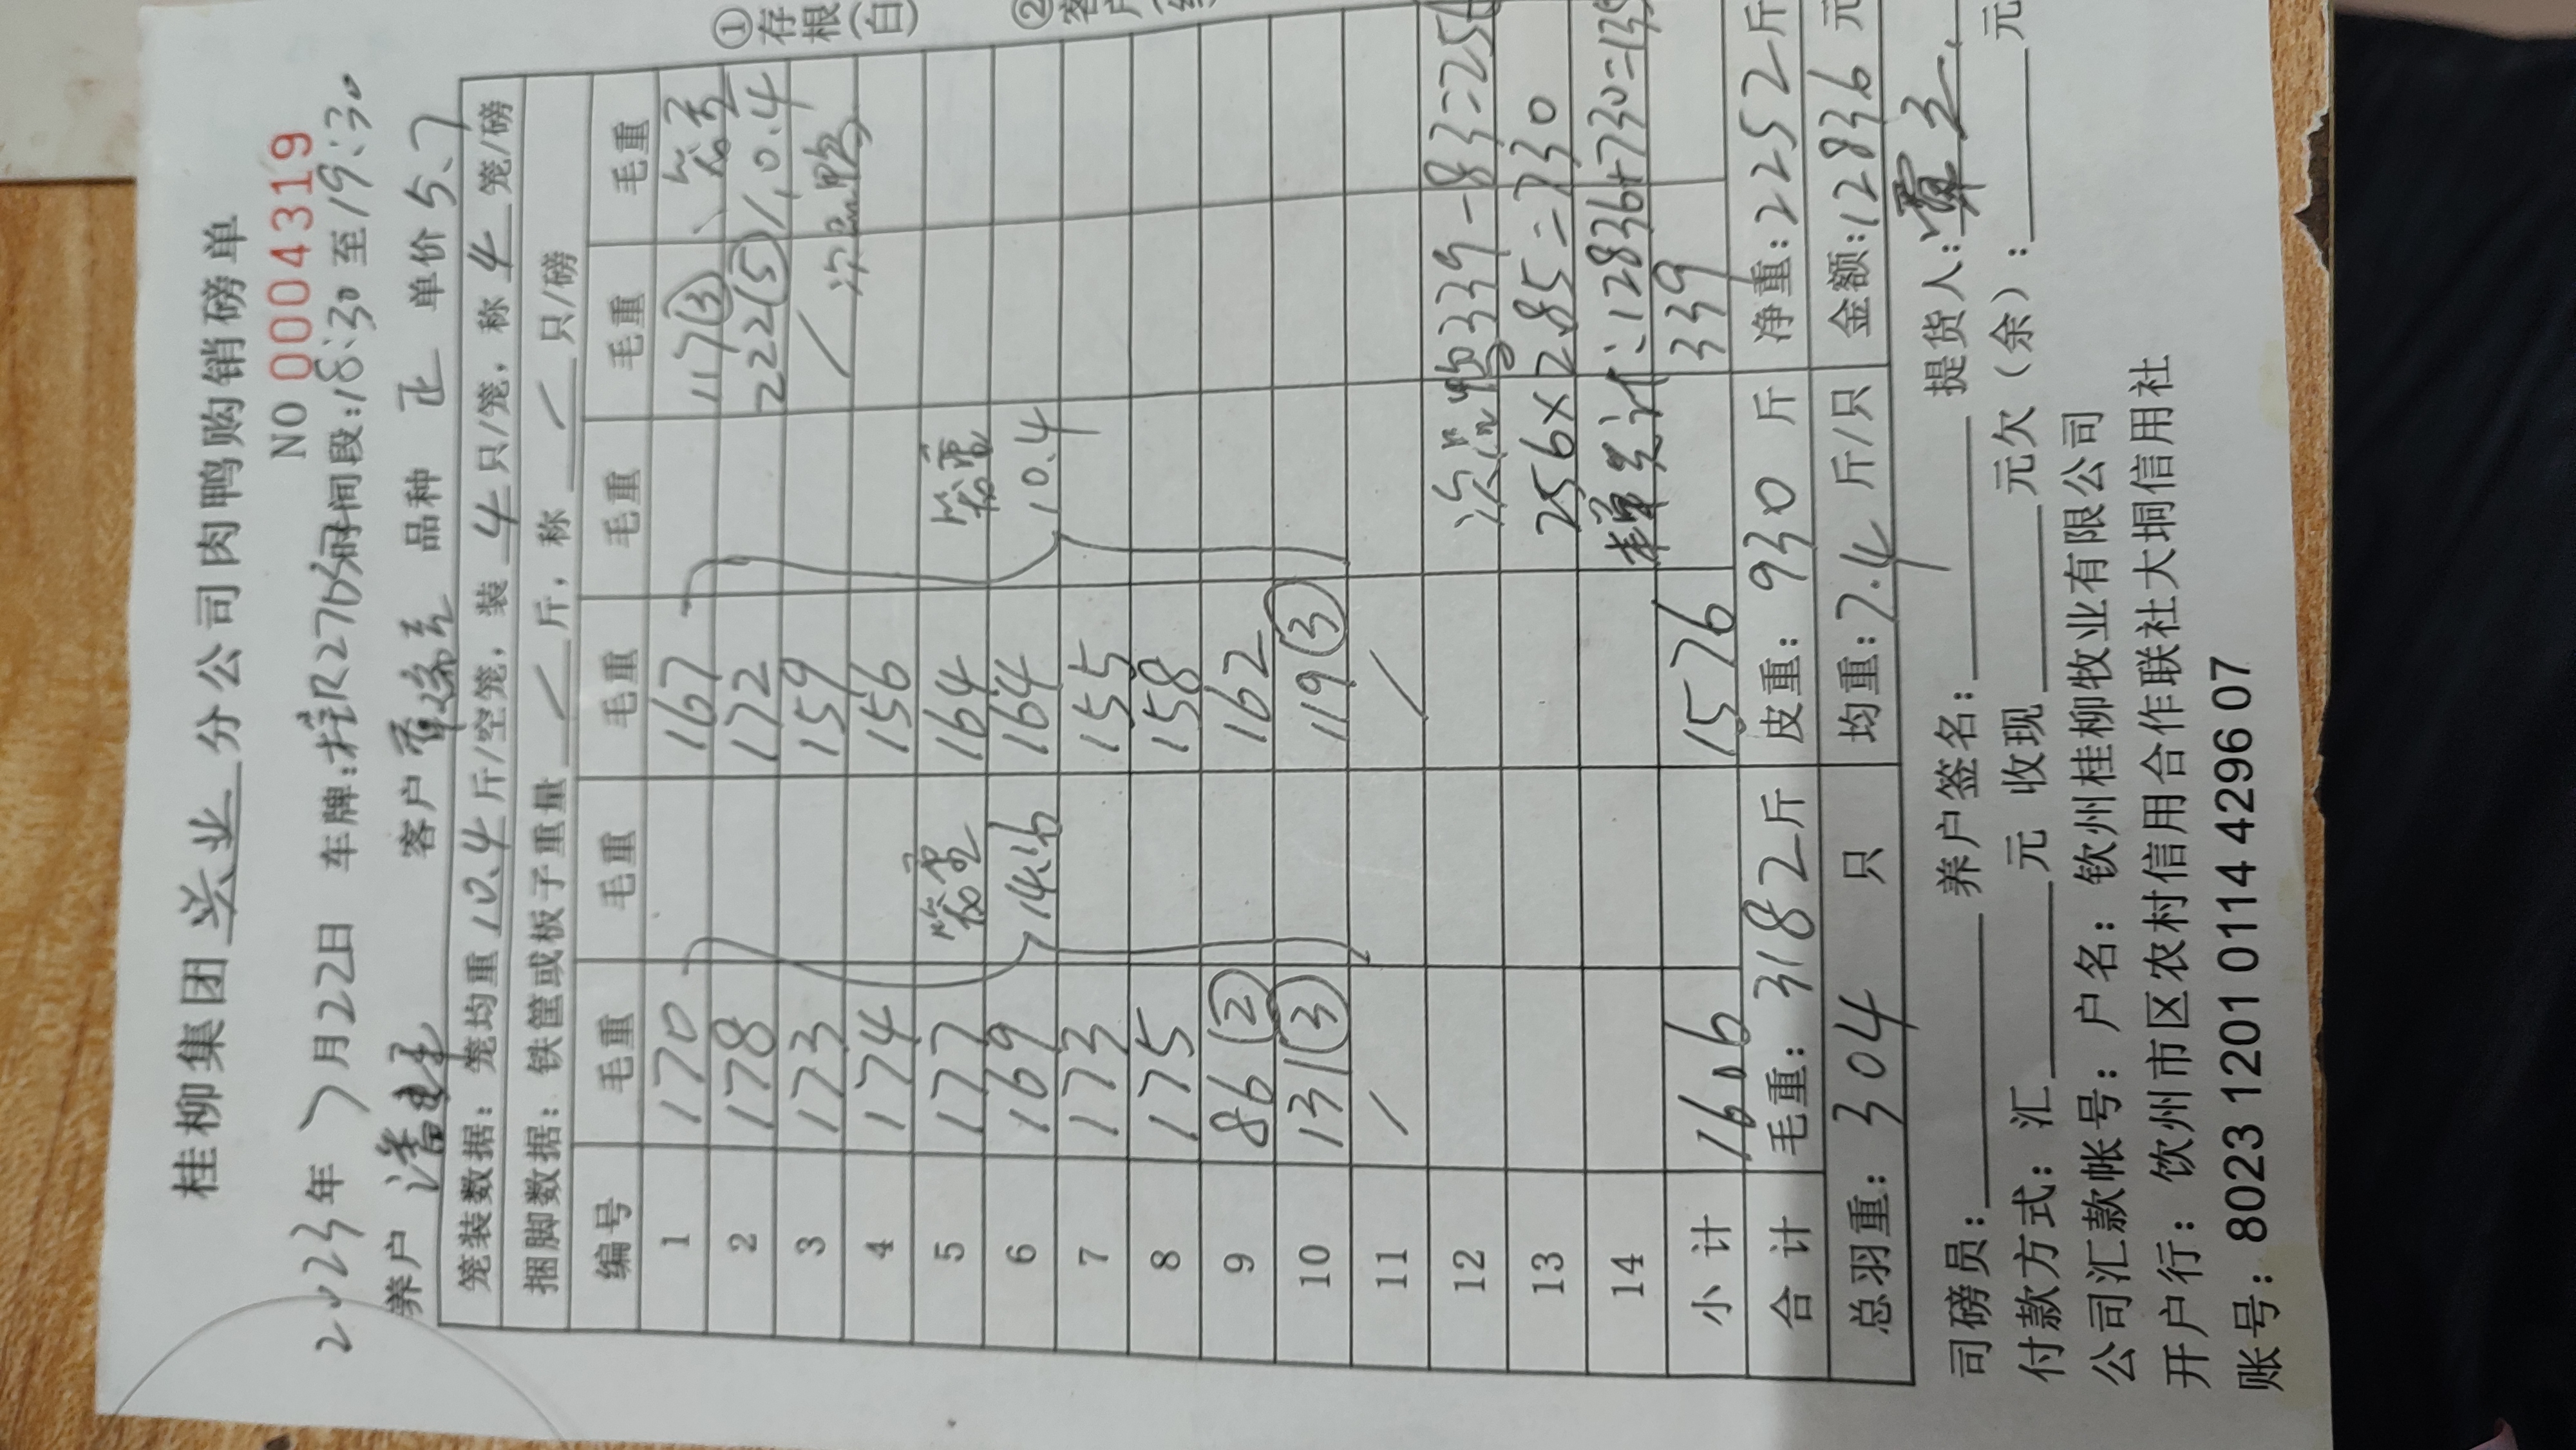 桂柳集团 兴业 分公司肉鸭购销磅单
NO 0004319
2023年 7月22日 车牌:桂R276 时间段:18:30至19:30
养户 客户 品种 正 单价 5.7
笼装数据: 笼均重 10.4 斤/空笼, 装 4 只/笼, 称 4 笼/磅
捆脚数据: 铁筐或板子重量 / 斤, 称 / 只/磅
编号 毛重 毛重 毛重 毛重 毛重 毛重
1 170 167 117(3) 笼重
2 178 172 222(5) 10.4
3 173 159 / 次品鸭
4 174 156
5 177 笼重 164 笼重
6 169 14.6 164 10.4
7 173 155
8 175 158
9 86(2) 162
10 131(3) 119(3)
11 / /
12 次品鸭339-83=256
13 256×2.85=730
14 单总计:12836+730=135
小计 1606 1576 339
合计 毛重: 3182斤 皮重: 930 斤 净重: 2252斤
总羽重: 304 只 均重: 7.4 斤/只 金额: 12836 元
司磅员: 养户签名: 提货人:
付款方式: 汇 元 收现 元欠(余): 元
公司汇款帐号: 户名: 钦州桂柳牧业有限公司
开户行: 钦州市区农村信用合作联社大垌信用社
账号: 8023 1201 0114 4296 07
①存根(白)
②客户